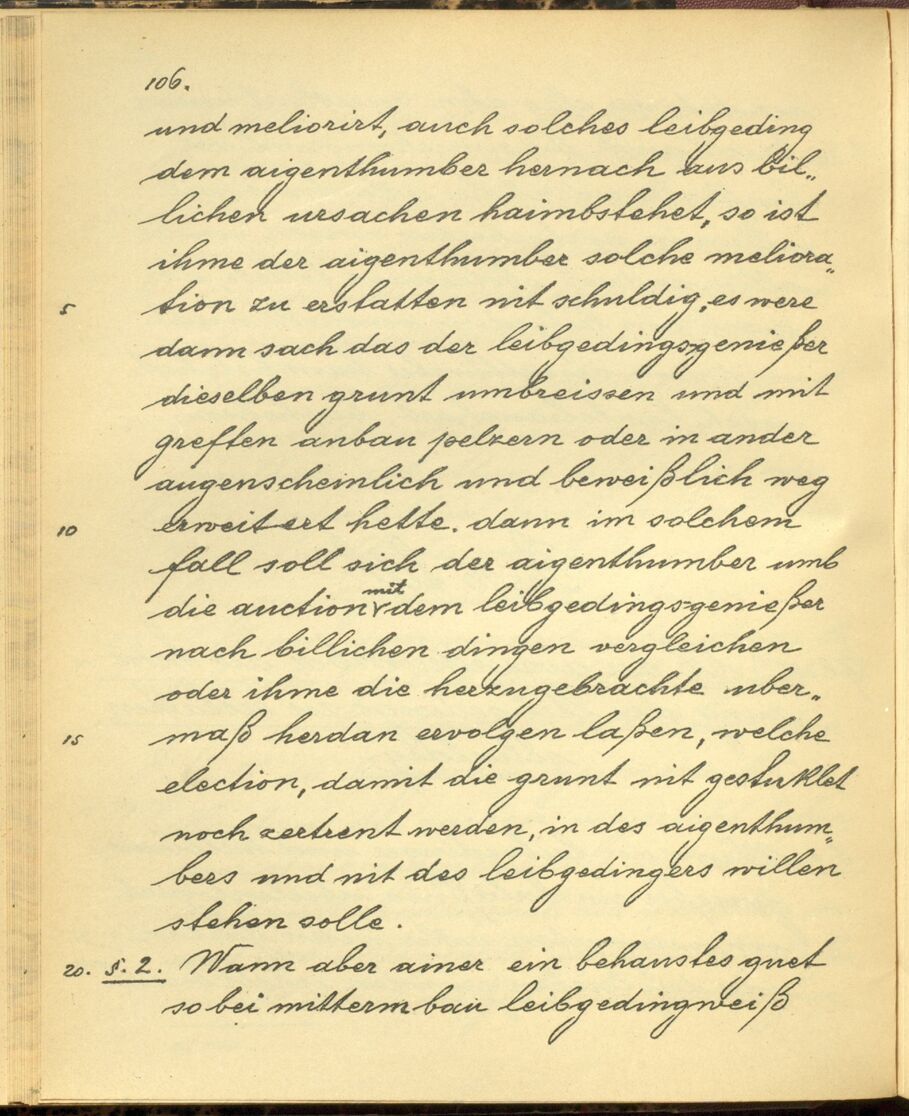 106.
und meliorirt, auch solches leibgeding
dem aigenthumber hernach aus bil„
lichen ursachen haimbstehet, so ist
ihme der aigenthumber solche meliora„
5 tion zu erstatten nit schuldig, es were
dann sach das der leibgedingsgenießer
dieselben grunt umbreissen und mit
greften anbau pelzern oder in ander
augenscheinlich und beweißlich weg
10 erweitert hette. dann im solchem
fall soll sich der aigenthumber umb
die auction mit dem leibgedingsgenießer
nach billichen dingen vergleichen
oder ihme die herzugebrachte uber„
15 maß herdan ervolgen laßen, welche
election, damit die grunt nit gestuklet
noch zertrent werden, in des aigenthum„
bers und nit des leibgedingers willen
stehen solle.
20. §. 2. Wann aber ainer ein behaustes guet
so bei mitterm bau leibgedingweiß